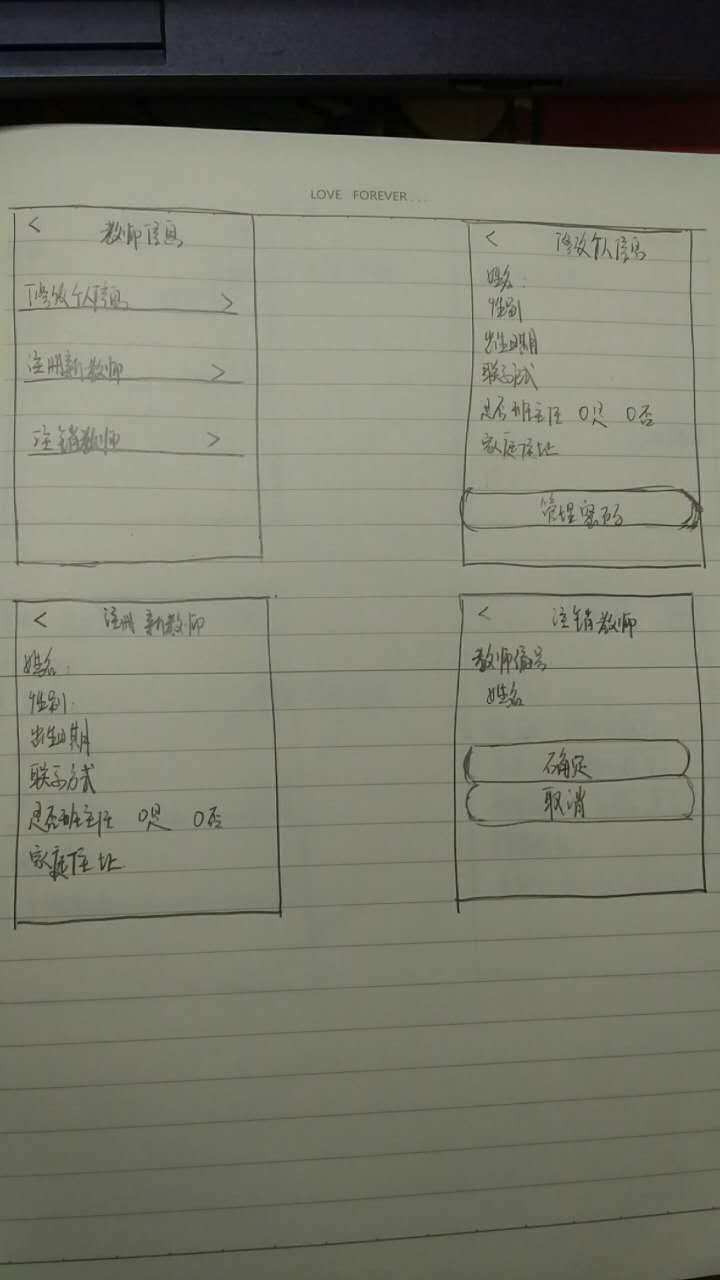 LOVE FOREVER...
< 教师信息
修改个人信息 >
注册新教师 >
注销教师 >
< 修改个人信息
姓名:
性别
出生日期
联系方式
是否班主任 O是 O否
家庭住址
管理密码
< 注册新教师
姓名:
性别:
出生日期
联系方式
是否班主任 O是 O否
家庭住址
< 注销教师
教师编号
姓名
确定
取消